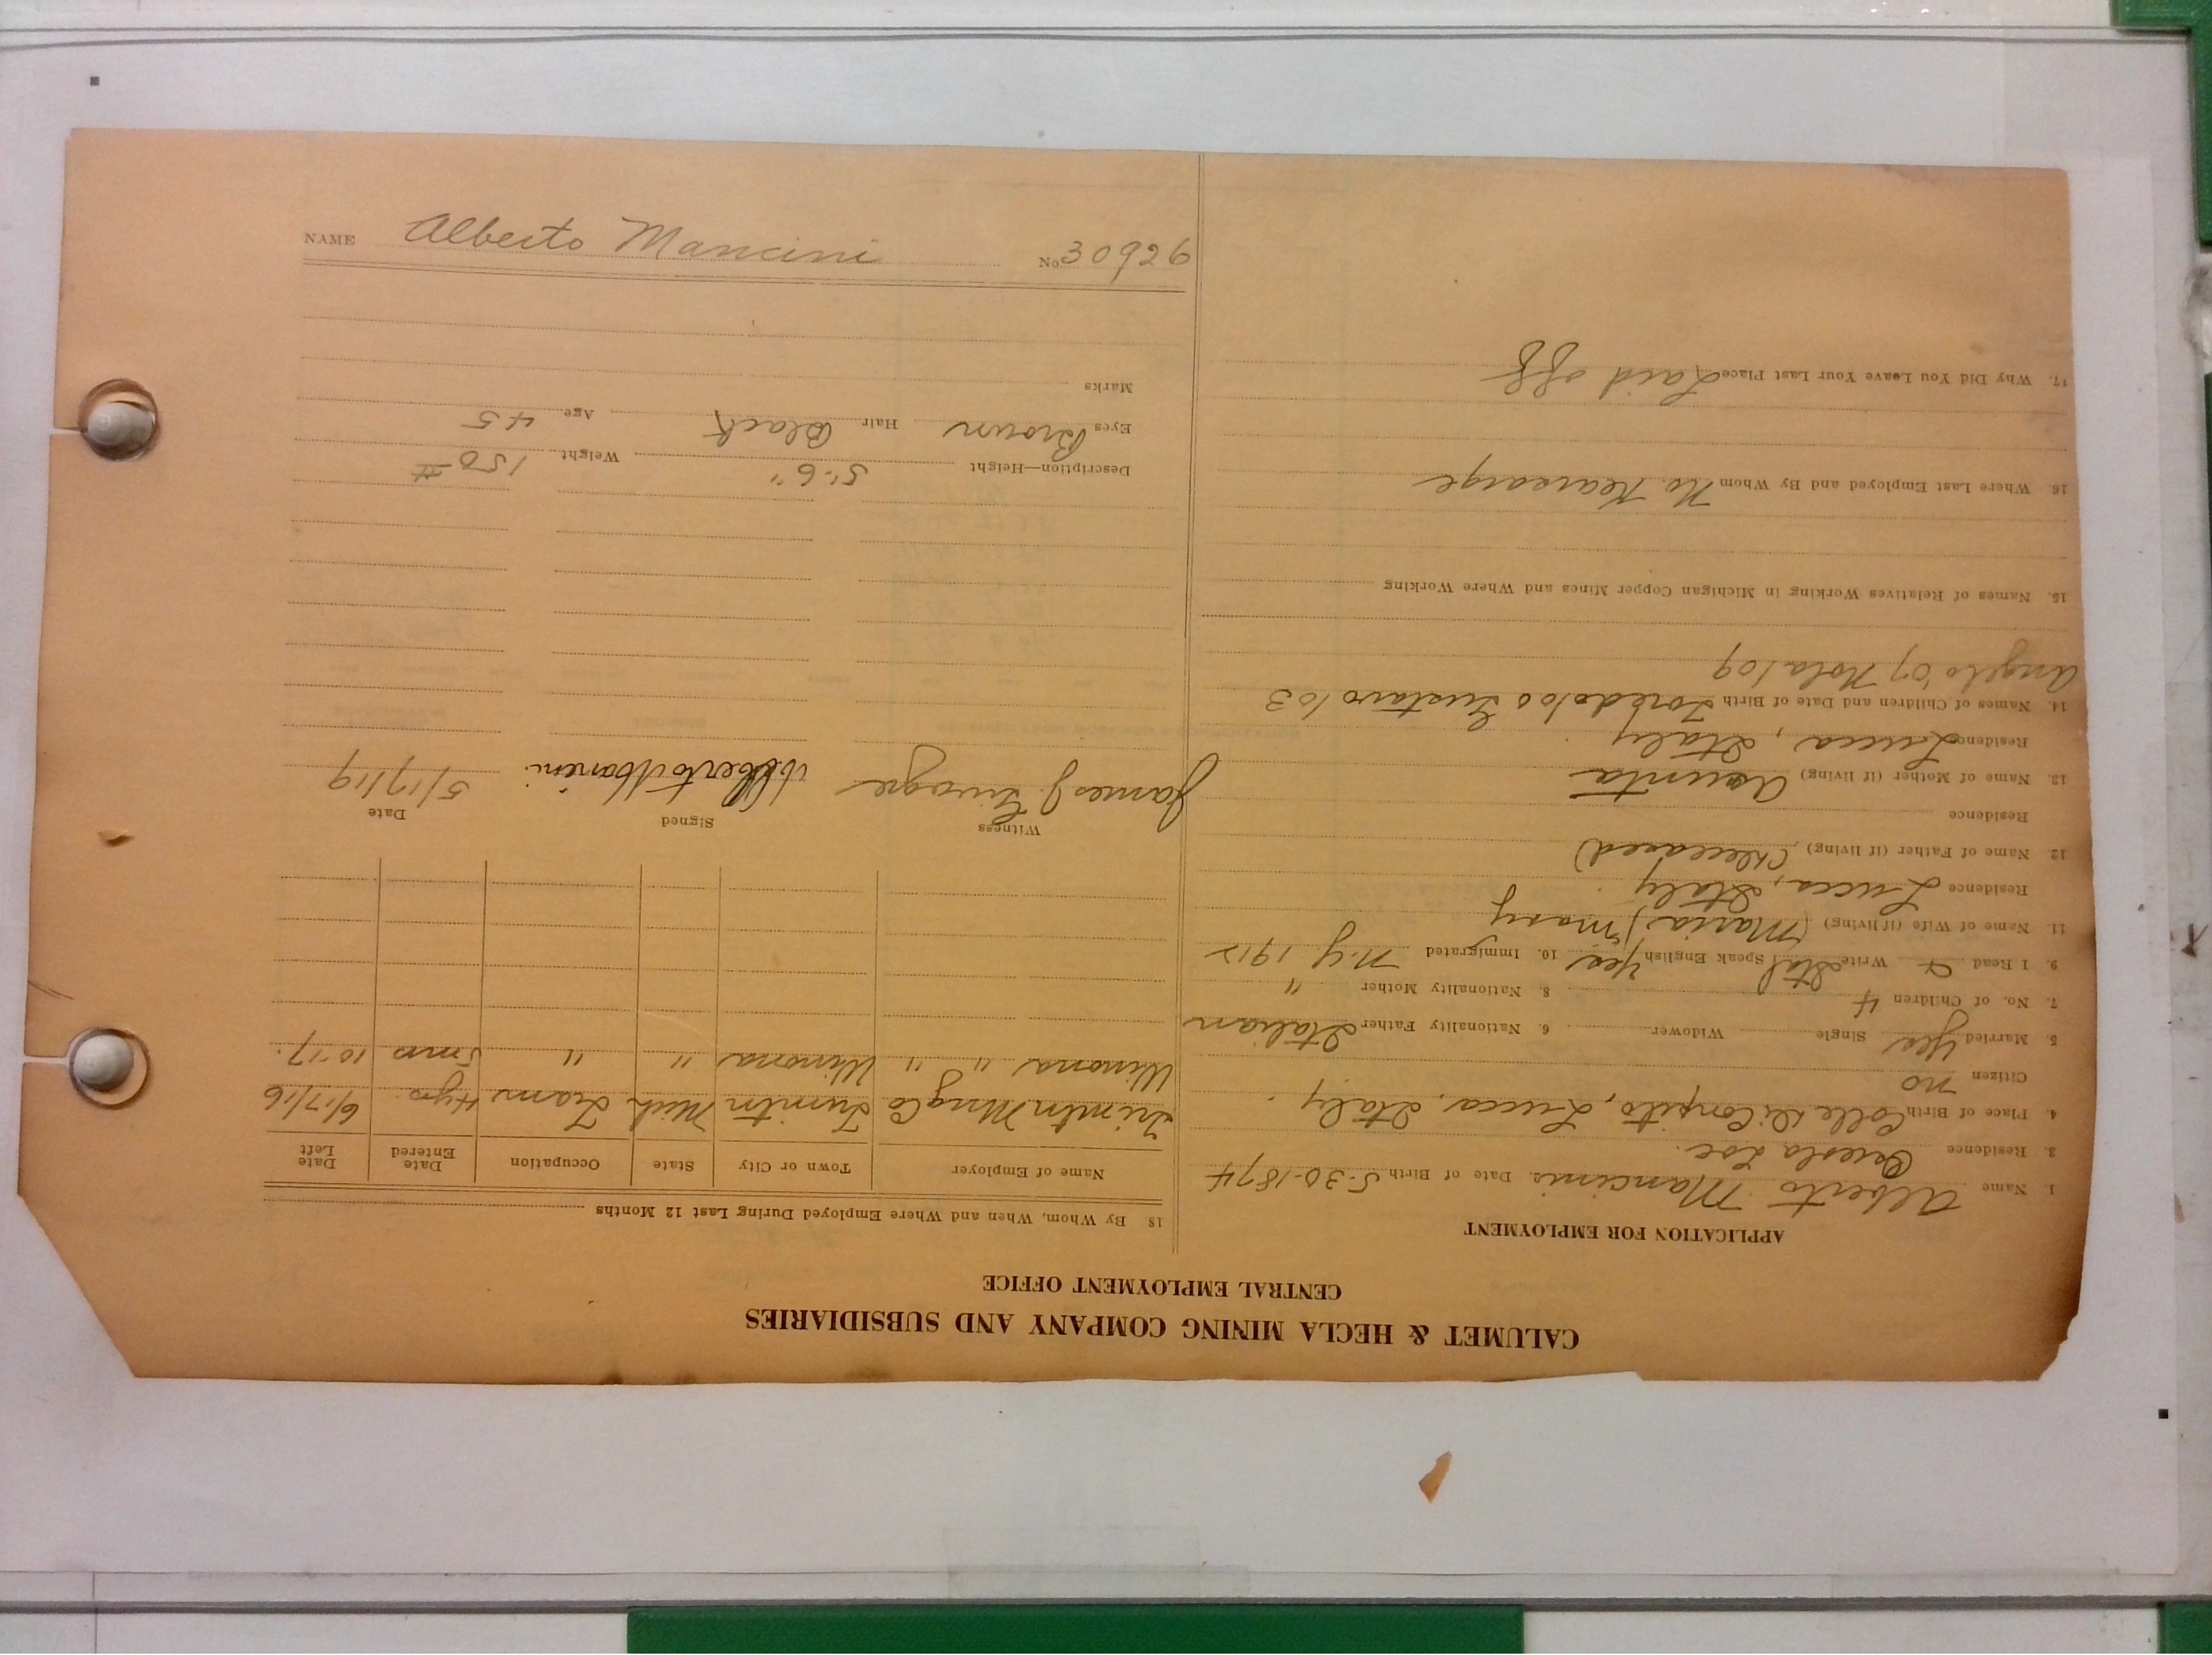 CALUMET & HECLA MINING COMPANY AND SUBSIDIARIES
CENTRAL EMPLOYMENT OFFICE
APPLICATION FOR EMPLOYMENT
1. Name Alberto Mancini. Date of Birth 5-30-1874
3. Residence Osceola Loc.
4. Place of Birth Colle di Compito, Lucca, Italy.
Citizen no
5. Married Yes Single Widower 6. Nationality Father Italian
7. No. of Children 4 8. Nationality Mother "
9. I Read & Write Ital Speak English Yes 10. Immigrated N.Y 1912
11. Name of Wife (if living) (Maria) Mary
Residence Lucca, Italy.
12. Name of Father (if living) (deceased)
Residence
13. Name of Mother (if living) Asunta
Residence Lucca, Italy
14. Names of Children and Date of Birth /00 Gustavo /03
Angelo '07 /09
15. Names of Relatives Working in Michigan Copper Mines and Where Working
16. Where Last Employed and By Whom No. Kearsarge
17. Why Did You Leave Your Last Place Laid off
18 By Whom, When and Where Employed During Last 12 Months
Name of Employer Town or City State Occupation Date Entered Date Left
Trimtn Mng Co Trimtn Mich Tram 4 yrs. 6/17/16
Winona " " Winona " " 5 mos 10-17.
Witness Signed Date
James J. Alberto Mancini 5/17/19
Description—Height 5'-6" Weight 150 #
Eyes Brown Hair Black Age 45
Marks
NAME Alberto Mancini No. 30926